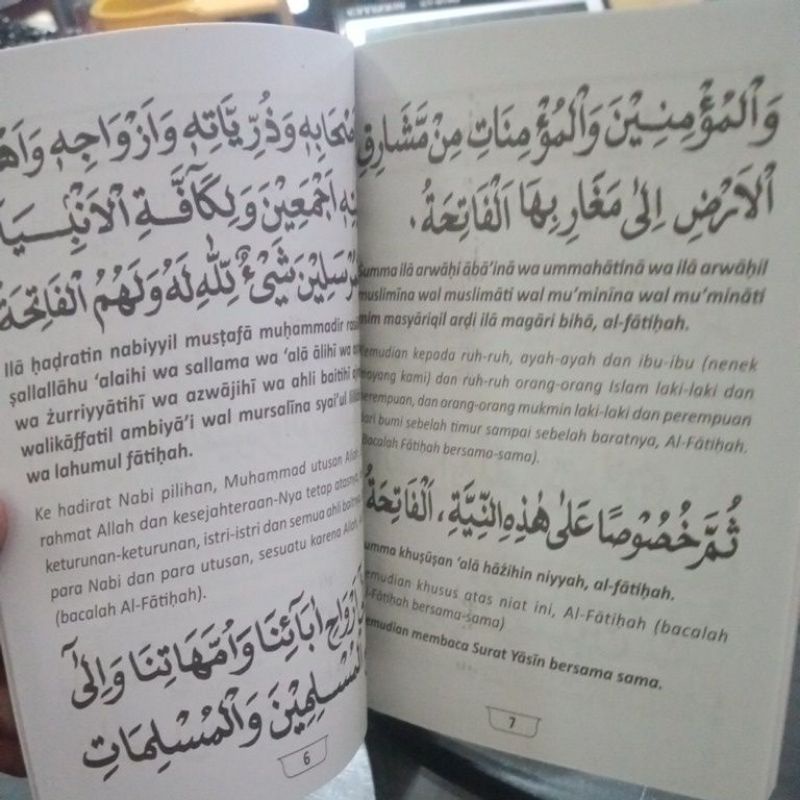 وَذُرِّيَّاتِهِ وَأَزْوَاجِهِ
أَجْمَعِيْنَ وَلِكَآفَّةِ
شَيْءٌ لِلّٰهِ لَهُ وَلَهُمُ الْفَاتِحَةُ
Ilā ḥaḍratin nabiyyil musṭafā muḥammadir
ṣallallāhu ‘alaihi wa sallama wa ‘alā ālihī wa
wa żurriyyātihī wa azwājihī wa ahli baitihī
walikāffatil ambiyā’i wal mursalīna syai’ul
wa lahumul fātiḥah.
Ke hadirat Nabi pilihan, Muhammad utusan Allah
rahmat Allah dan kesejahteraan-Nya tetap
keturunan-keturunan, istri-istri dan semua ahli
para Nabi dan para utusan, sesuatu karena Allah
(bacalah Al-Fātiḥah).
أَرْوَاحِ اٰبَآئِنَا وَأُمَّهَاتِنَا وَإِلَىٰ
وَالْمُسْلِمَاتِ
6
وَالْمُؤْمِنِيْنَ وَالْمُؤْمِنَاتِ مِنْ مَّشَارِقِ
الْاَرْضِ اِلىٰ مَغَارِبِهَا اَلْفَاتِحَةُ.
Summa ilā arwāḥi ābā’inā wa ummahātinā wa ilā arwāḥil
muslimīna wal muslimāti wal mu’minīna wal mu’mināti
mim masyāriqil arḍi ilā magāri bihā, al-fātiḥah.
kepada ruh-ruh, ayah-ayah dan ibu-ibu (nenek
kami) dan ruh-ruh orang-orang Islam laki-laki dan
perempuan, dan orang-orang mukmin laki-laki dan perempuan
bumi sebelah timur sampai sebelah baratnya, Al-Fātiḥah.
(Bacalah Fātiḥah bersama-sama).
ثُمَّ خُصُوْصًا عَلىٰ هٰذِهِ النِّيَّةِ، اَلْفَاتِحَةُ
khuṣūṣan ‘alā hāżihin niyyah, al-fātiḥah.
khusus atas niat ini, Al-Fātiḥah (bacalah
bersama-sama)
membaca Surat Yāsīn bersama sama.
7